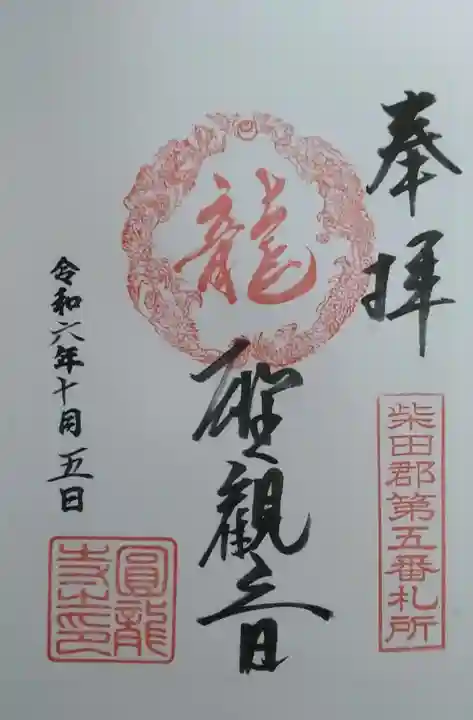 奉拝
柴田郡第五番札所
龍
聖観音
令和六年十月五日
圓龍寺之印